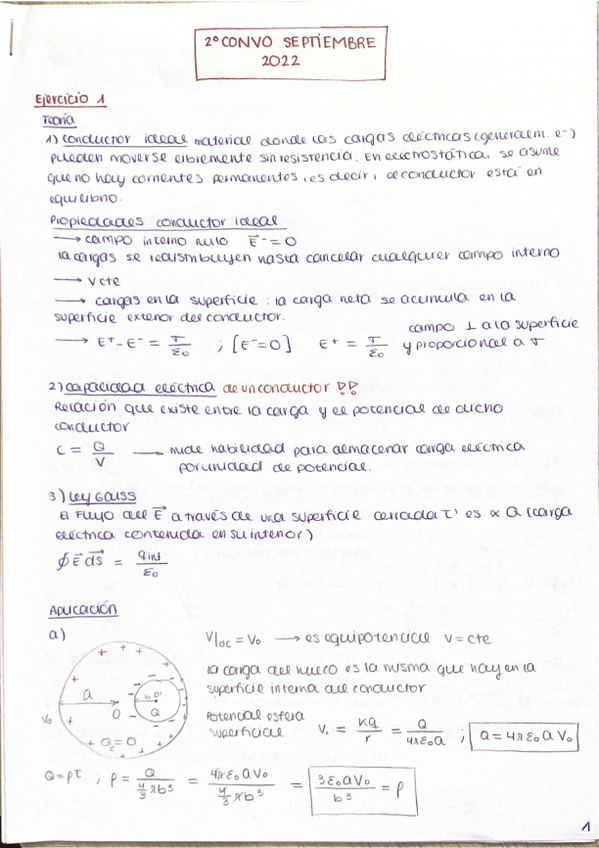 2º CONVO SEPTIEMBRE
2022
Ejercicio 1
Teoría
1) conductor ideal material donde las cargas eléctricas (generalm. e⁻)
pueden moverse libremente sin resistencia. En electrostática, se asume
que no hay corrientes permanentes, es decir, el conductor está en
equilibrio.
Propiedades conductor ideal
→ campo interno nulo E⃗⁻ = 0
la cargas se redistribuyen hasta cancelar cualquier campo interno
→ V cte
→ cargas en la superficie: la carga neta se acumula en la
superficie exterior del conductor.
→ E⁺ - E⁻ = σ/ε₀ ; [E⁻ = 0] E⁺ = σ/ε₀ campo ⊥ a la superficie
y proporcional a σ
2) capacidad eléctrica de un conductor !!
Relación que existe entre la carga y el potencial de dicho
conductor
C = Q/V → mide habilidad para almacenar carga eléctrica
por unidad de potencial.
3) Ley Gauss
El Flujo del E⃗ a través de una superficie cerrada τ' es ∝ Q (carga
eléctrica contenida en su interior)
∮ E⃗ dS⃗ = q int/ε₀
Aplicación
a)
V|∂C = V₀ → es equipotencial V = cte
la carga del hueco es la misma que hay en la
superficie interna del conductor
Potencial esfera
superficial V₀ = KQ/r = Q/4πε₀a ; Q = 4πε₀aV₀
a
O
b O'
Q
V₀
Q = 0
Q = ρτ ; ρ = Q/(4/3 πb³) = 4πε₀aV₀/(4/3 πb³) = 3ε₀aV₀/b³ = ρ
1